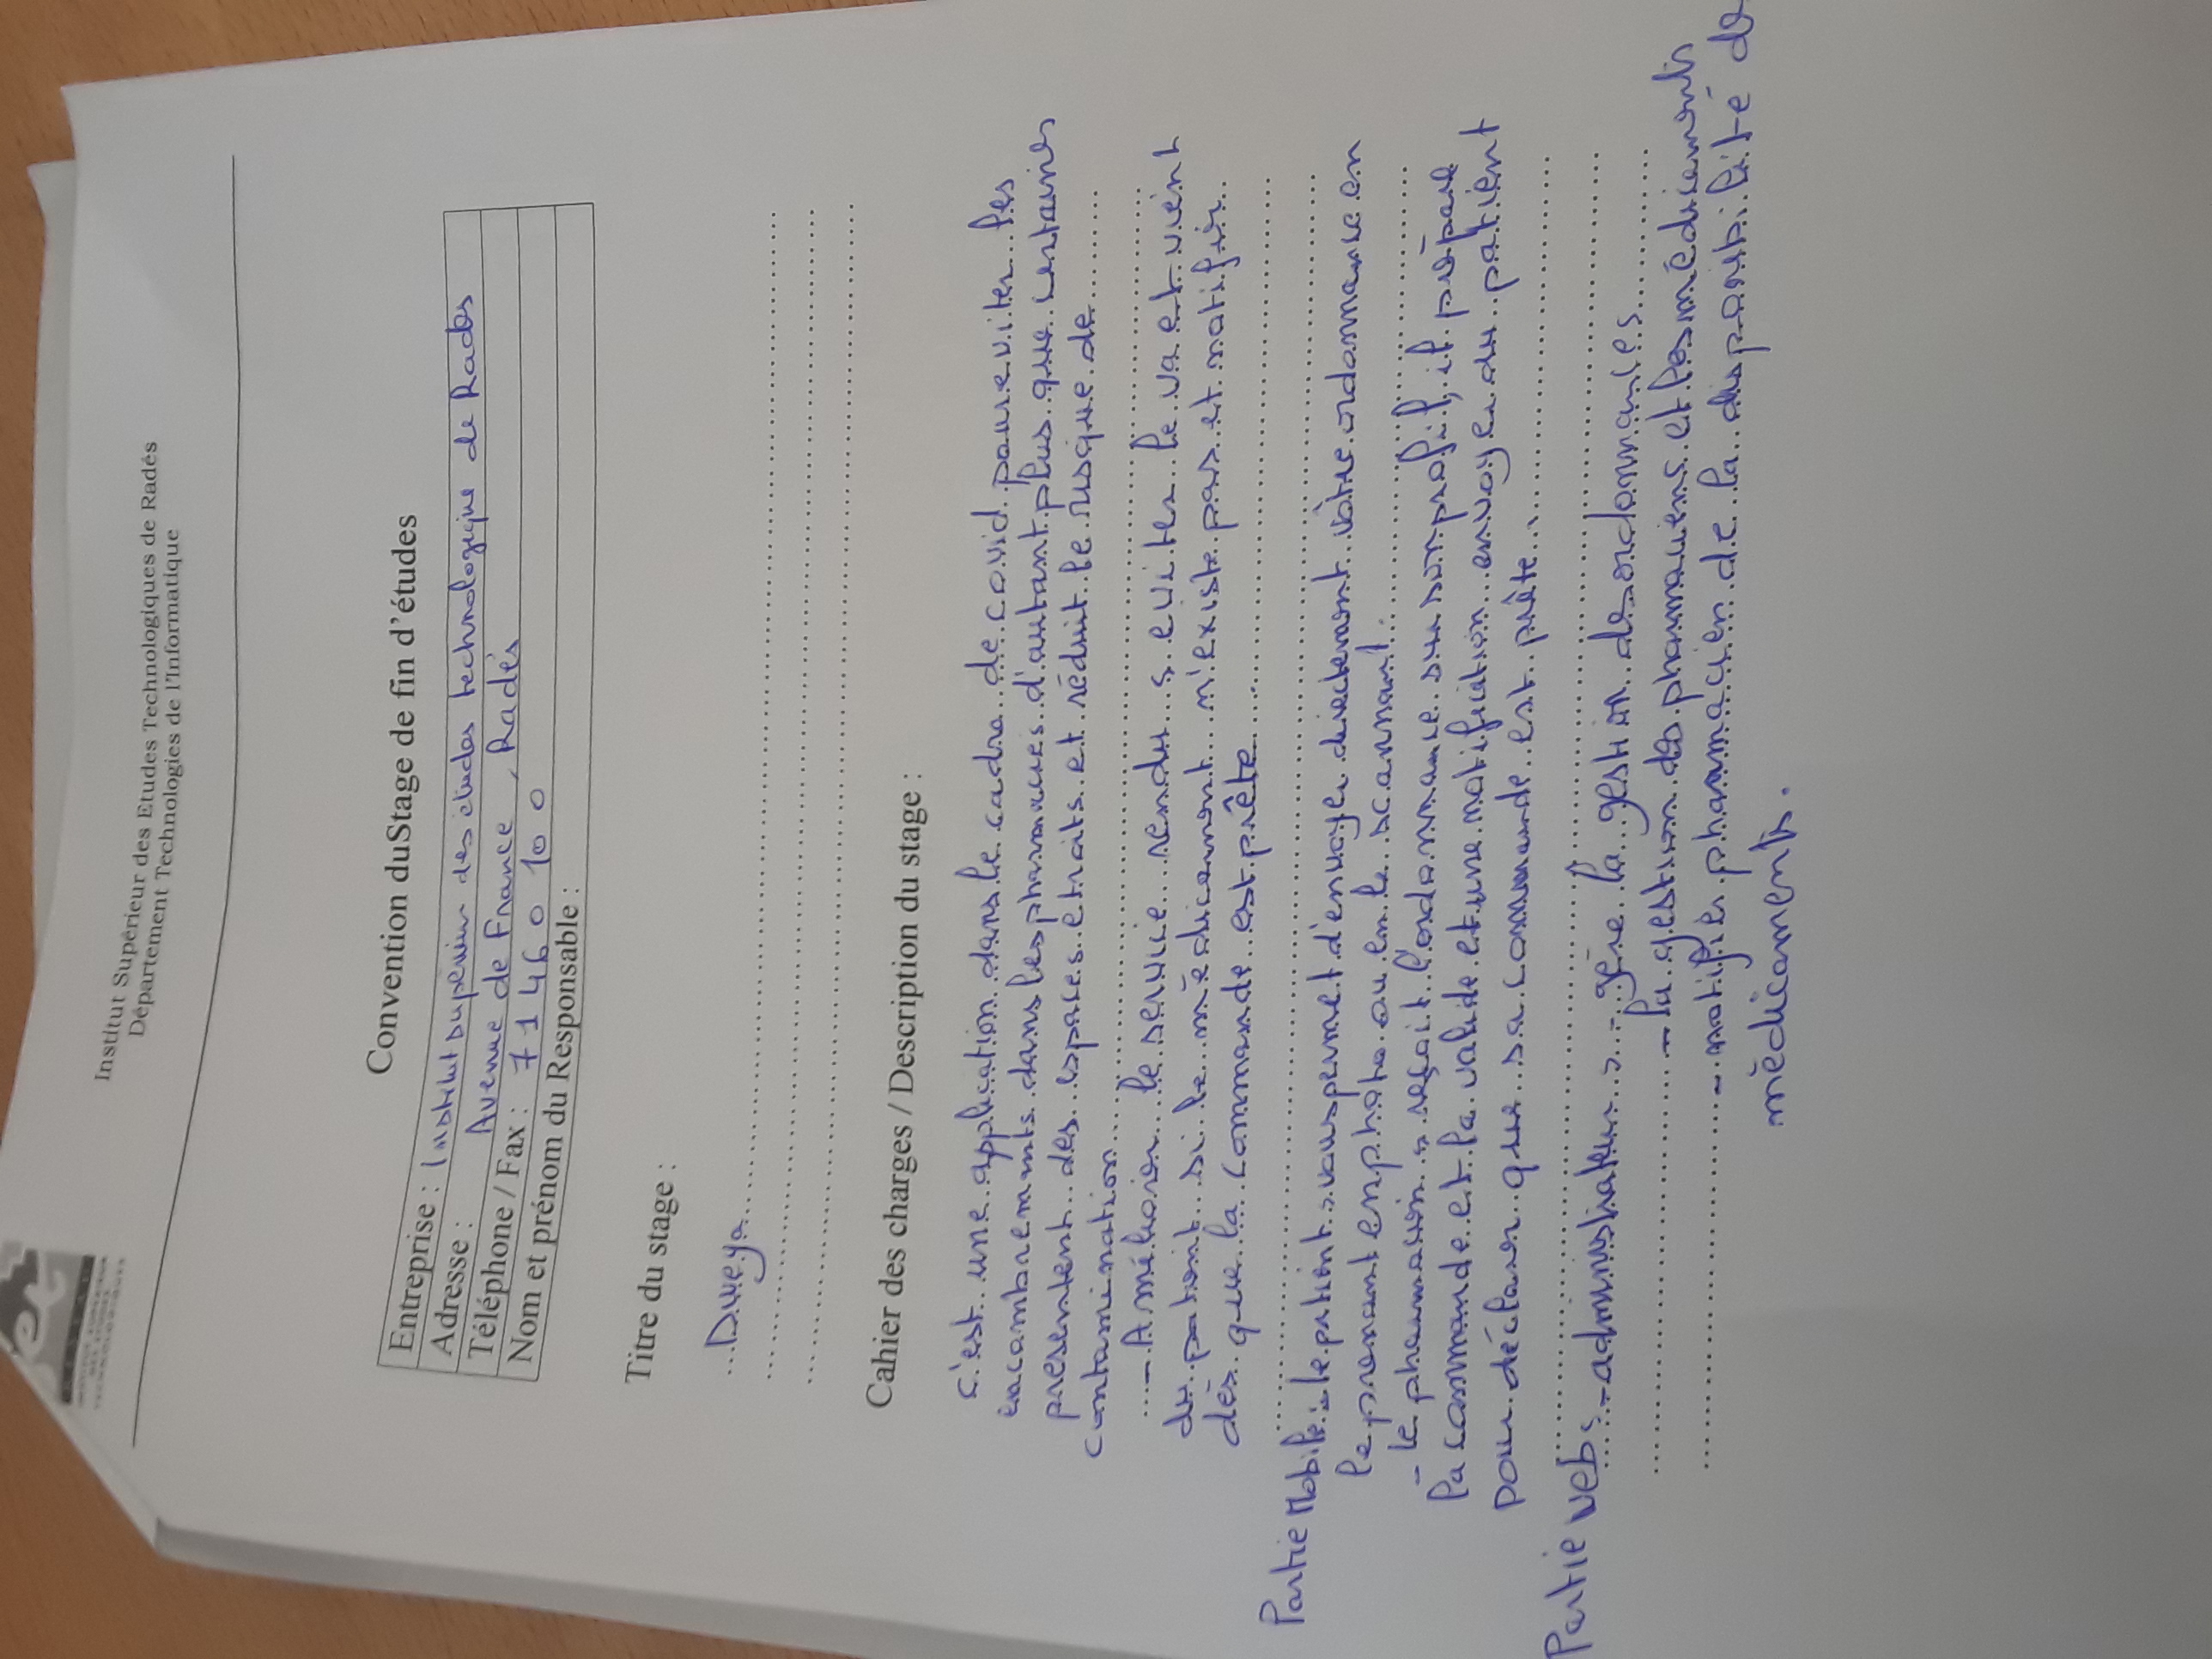 et
RESEAU
INSTITUT SUPERIEUR
DES ETUDES
TECHNOLOGIQUES
Institut Supérieur des Etudes Technologiques de Radés
Département Technologies de l'Informatique
Convention duStage de fin d'études
Entreprise : Institut supérieur des études technologique de Radès
Adresse : Avenue de France, Radès
Téléphone / Fax : 71 460 100
Nom et prénom du Responsable :
Titre du stage :
Dweya
Cahier des charges / Description du stage :
c'est une application dans le cadre de covid pour eviter les
encombrements dans les pharmacies d'autant plus que certaines
présentent des espaces étroits et réduit le risque de
contamination
- Améliorer le service rendu : eviter le va et vient
du patient si le médicament n'existe pas et notifier
dès que la commande est prête
Partie Mobile : - le patient : vous permet d'envoyer directement vôtre ordonnance en
le prenant en photo ou en le scannant.
- le pharmacien : reçoit l'ordonnance sur son profil, il prépare
la commande et la valide et une notification envoyer du patient
pour déclarer que sa commande est prête.
Partie web : - administrateur : - gère la gestion des ordonnances
- la gestion des pharmaciens et les médicaments
- notifier pharmacien de la disponibilité de
médicaments.